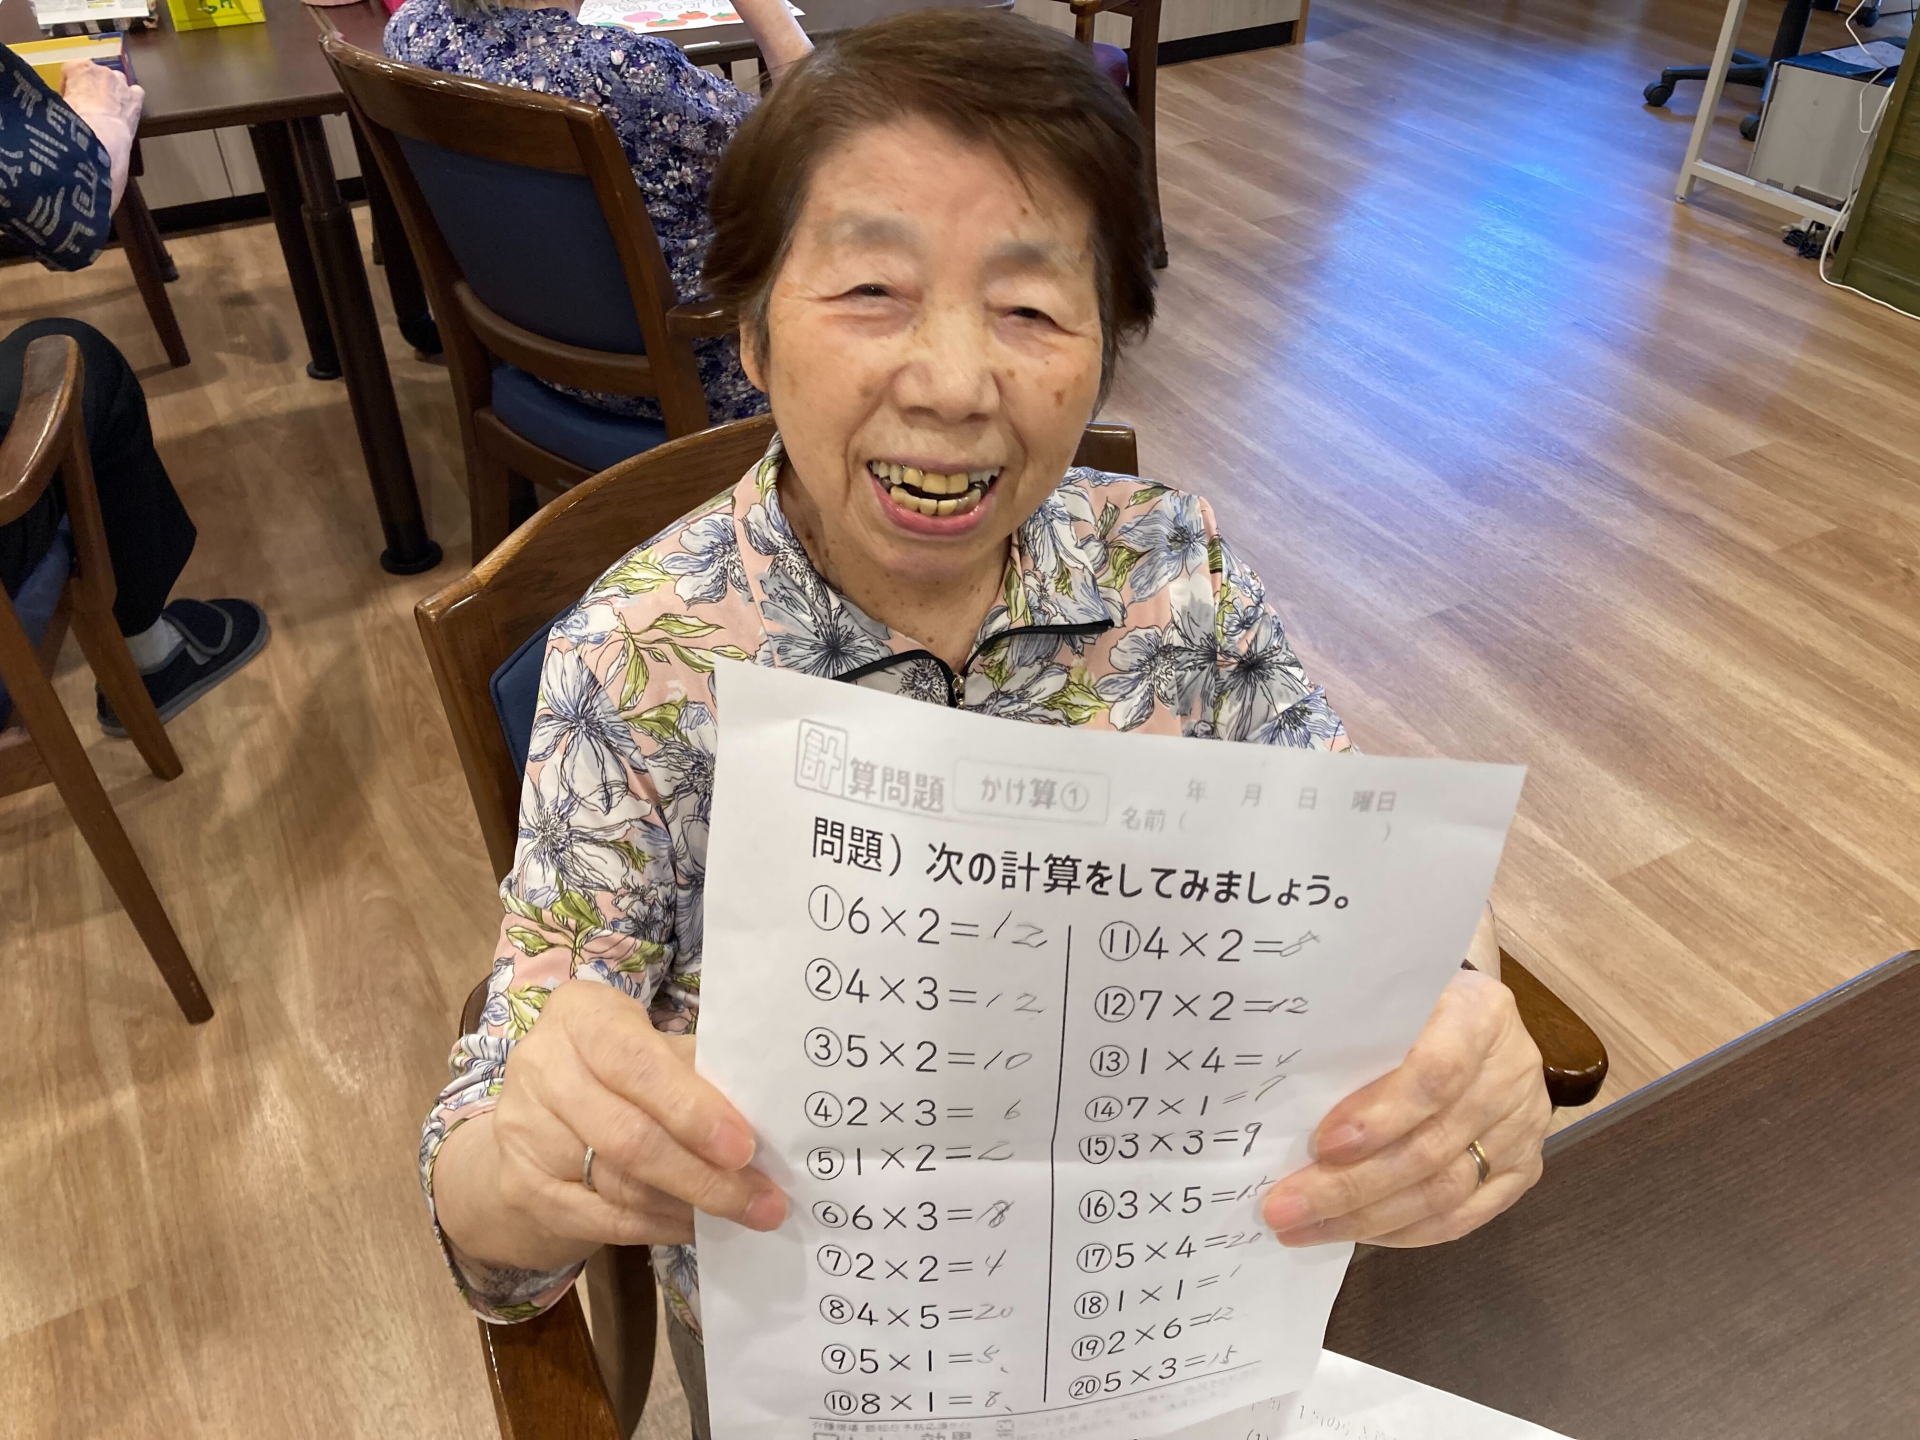 計算問題 かけ算① 年 月 日 曜日
名前( )
問題）次の計算をしてみましょう。
①6×2=12
②4×3=12
③5×2=10
④2×3=6
⑤1×2=2
⑥6×3=18
⑦2×2=4
⑧4×5=20
⑨5×1=5、
⑩8×1=8、
⑪4×2=8
⑫7×2=12
⑬1×4=4
⑭7×1=7
⑮3×3=9
⑯3×5=15
⑰5×4=20
⑱1×1=1
⑲2×6=12
⑳5×3=15